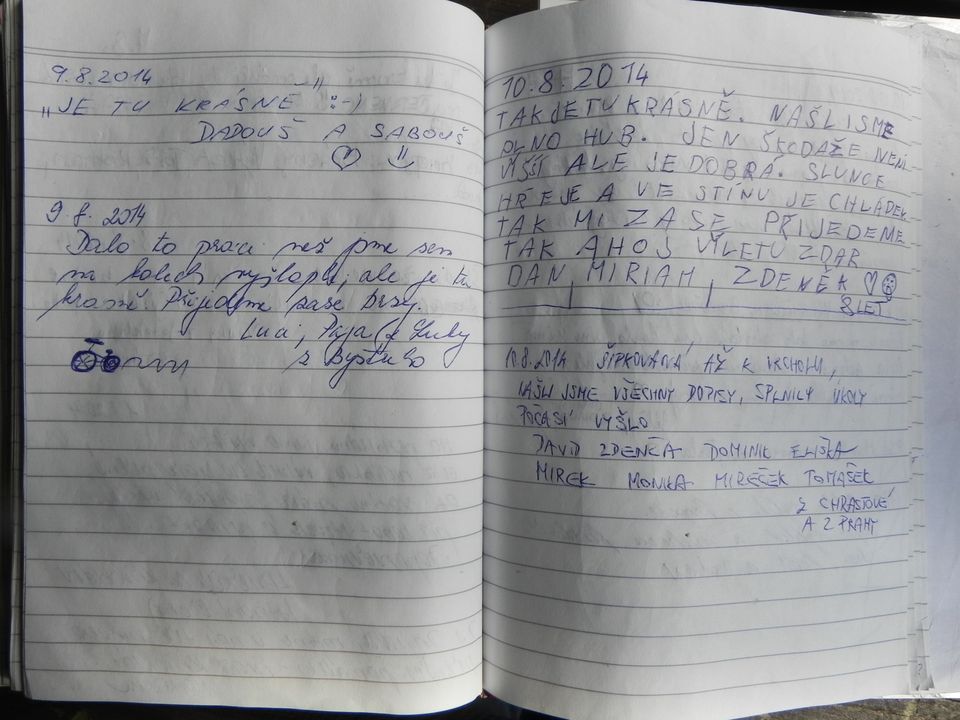 9.8.2014
„JE TU KRÁSNĚ" :-)
DADOUŠ A SABOUŠ
9.8. 2014
Dalo to práci než jsme sem
na kolech vyšlapli, ale je tu
krásně Přijedeme zase brzy.
Luci, Pája
z Bystrého
10.8.2014
TAK JE TU KRÁSNĚ. NAŠLI SME
PLNO HUB. JEN ŠKODA ŽE NENÍ
VĚŠÍ ALE JE DOBRÁ. SLUNCE
HŘEJE A VE STÍNU JE CHLÁDEK
TAK MI ZASE PŘIJEDEME
TAK AHOJ VÍLETU ZDAR
DAN MIRIAM ZDENĚK
8 LET
10.8.2014 ŠIPKOVANÁ AŽ K VRCHOLU,
NAŠLI JSME VŠECHNY DOPISY, SPLNILY ÚKOLY
POČASÍ VYŠLO
DAVID ZDENČA DOMINIK ELIŠKA
MIREK MONIKA MIREČEK TOMÁŠEK
Z CHRASTOVÉ
A Z PRAHY